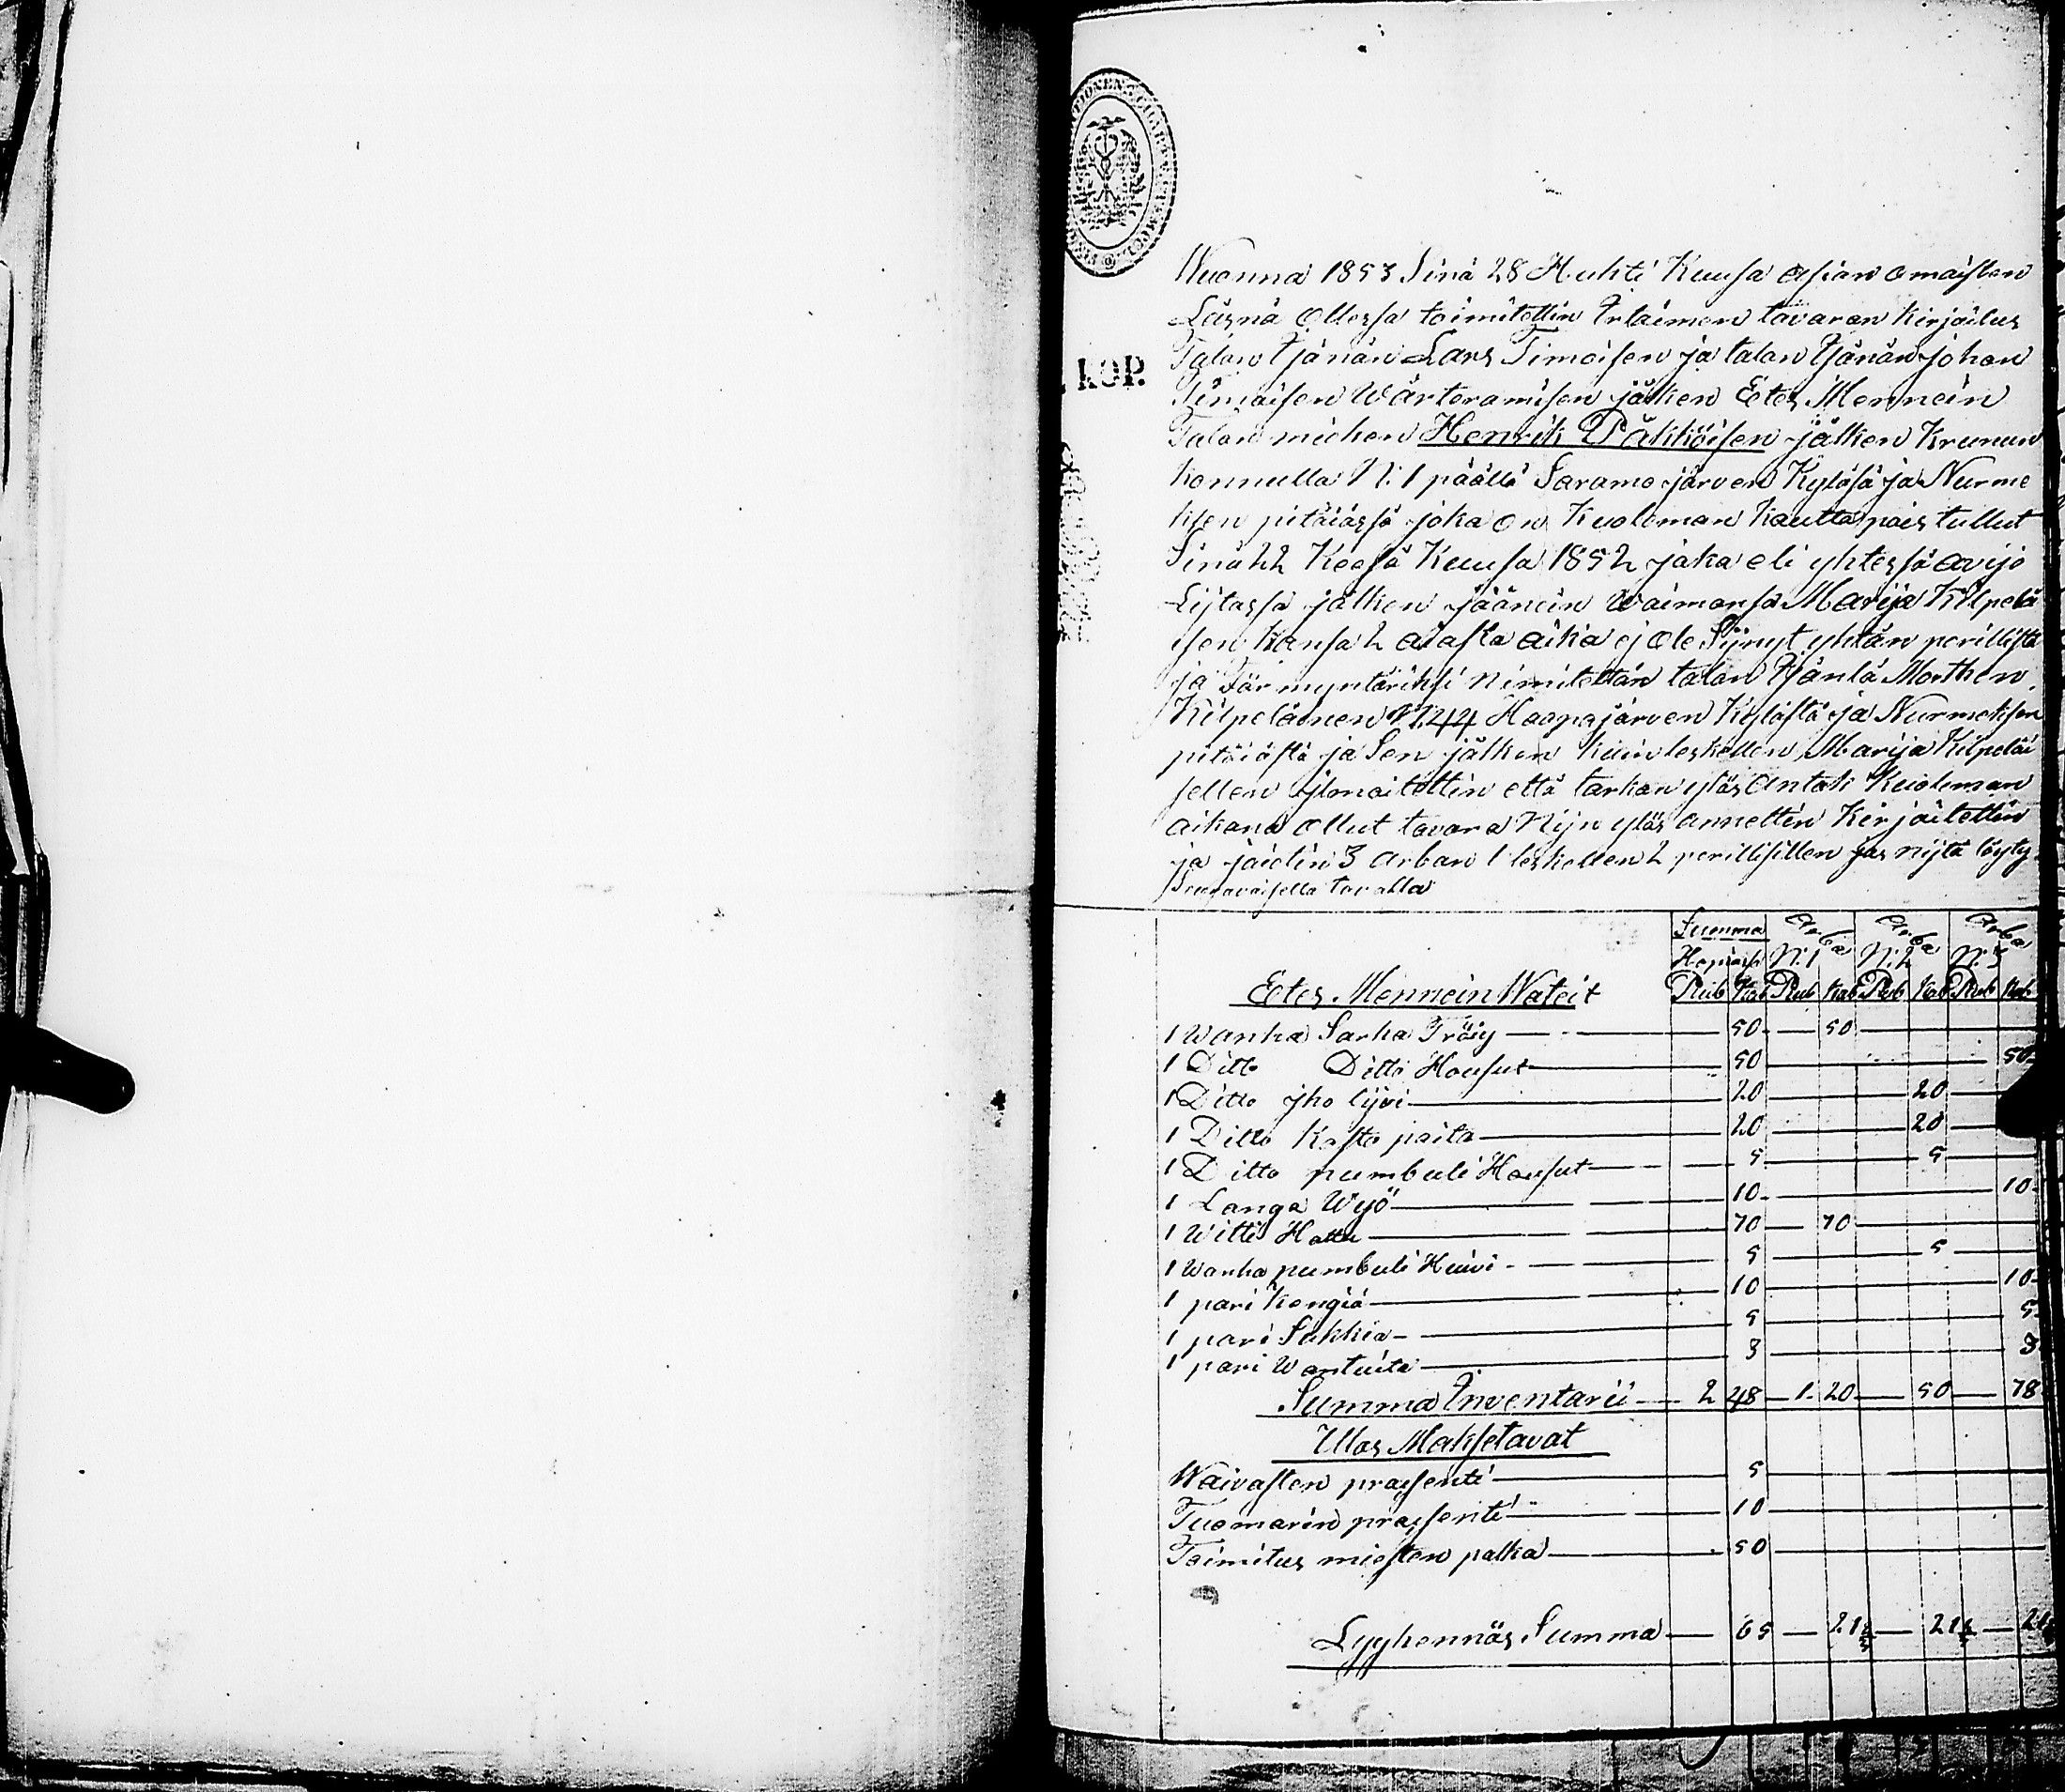 KOP.
Wuonna 1853 Sinä 28 Huhti Kuusa asian omaisten
Läsnä Ollessa toimitettin Irtaimen tavaran kirjoitus
Talan Isänän Lars Timoisen ja talan Isänän johan
Timoisen Wärteramisen jälken Etes Mennein
Talan miehen Henrik Päkköisen jälken Krunun
konnulla N:1 päällä Saramo järven Kyläsä ja Nurme
ksen pitäiässä joka on Kuoleman kautta pois tullut
Sinä 22 Kessä Kuusa 1852 joka eli yhtessä avijo
Lijtossa jälken jäänein Waimonsa Marija Kilpelä
isen kansa 2 aiasta aika ej ole Sijnyt yhtän perillistä
ja Förmyntäriksi nimitettän talan Isäntä Morthen
Kilpeläinen N:44 Haapajärven Kylästä ja Nurmeksen
pitäiästä ja Sen jälken kuin leskellen Marija Kilpeläi
sellen ilmoitettin että tarkan ylös antak Kuoleman
aikana ollut tavara Nijn ylös annettin Kirjoitettin
ja jaietin 3 arban 1 leskellen 2 perillisillen jas nijtä löyty
Seuravaisella tavalla
Summa Arba Arba Arba
Hopiassa N:1 N:2 N:3
Etes Mennein Wateit Rub Kob Rub Kob Rub Kob Rub Kob
1 Wanha Sarka Tröiy 50 50
1 Ditto Ditto Housut 50 50
1 Ditto jho lijvi 20 20
1 Ditto Kasto paita 20 20
1 Ditto pumbuli Housut 5 5
1 Langa Wyö 10 10
1 Witti Hattu 70 70
1 Wanha pumbuli Huivi 5 5
1 pari Kengiä 10 10
1 pari Sukkia 5 5
1 pari Wantuita 3 3
Summa Inventarii 2 48 1 20 50 78
Ulos Maksetavat
Waivasten prosenti 5
Tuomarin prosenti 10
Toimitus miesten palka 50
Lyyhennös Summa 65 21⅔ 21⅔ 21⅔